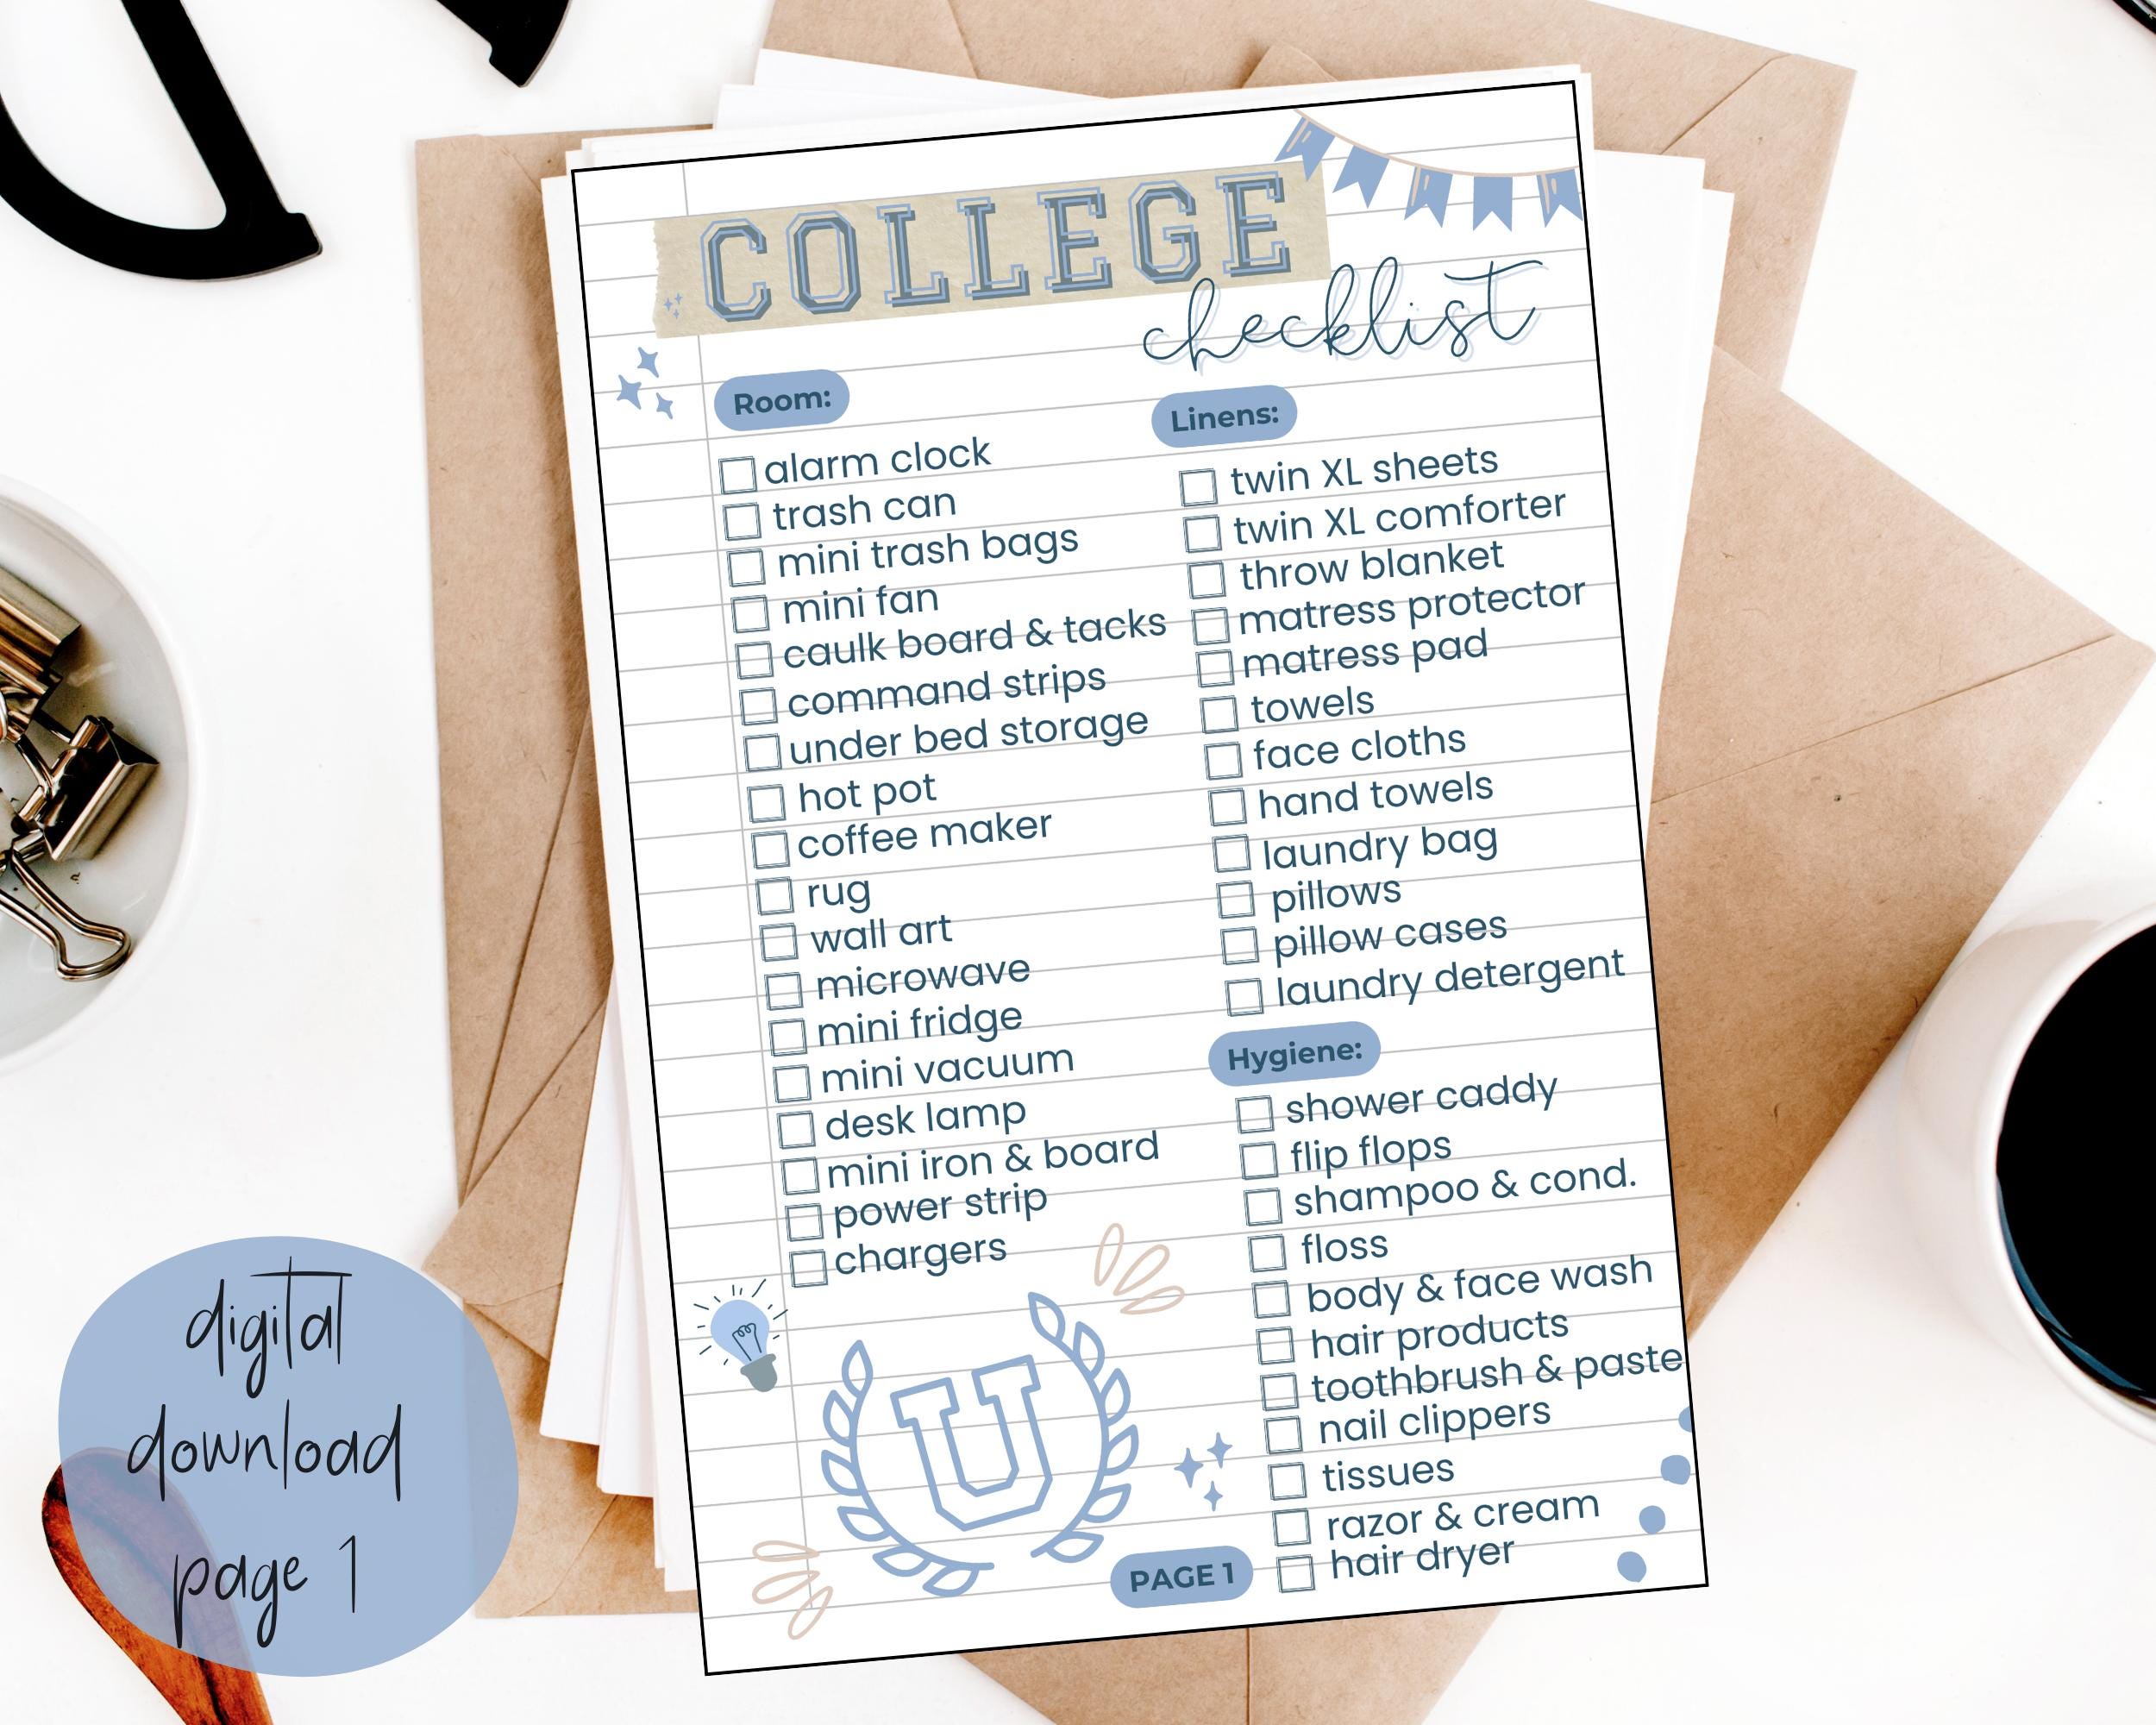 COLLEGE
checklist
Room:
alarm clock
trash can
mini trash bags
mini fan
caulk board & tacks
command strips
under bed storage
hot pot
coffee maker
rug
wall art
microwave
mini fridge
mini vacuum
desk lamp
mini iron & board
power strip
chargers
U
Linens:
twin XL sheets
twin XL comforter
throw blanket
matress protector
matress pad
towels
face cloths
hand towels
laundry bag
pillows
pillow cases
laundry detergent
Hygiene:
shower caddy
flip flops
shampoo & cond.
floss
body & face wash
hair products
toothbrush & paste
nail clippers
tissues
razor & cream
hair dryer
PAGE 1
digital
download
page 1